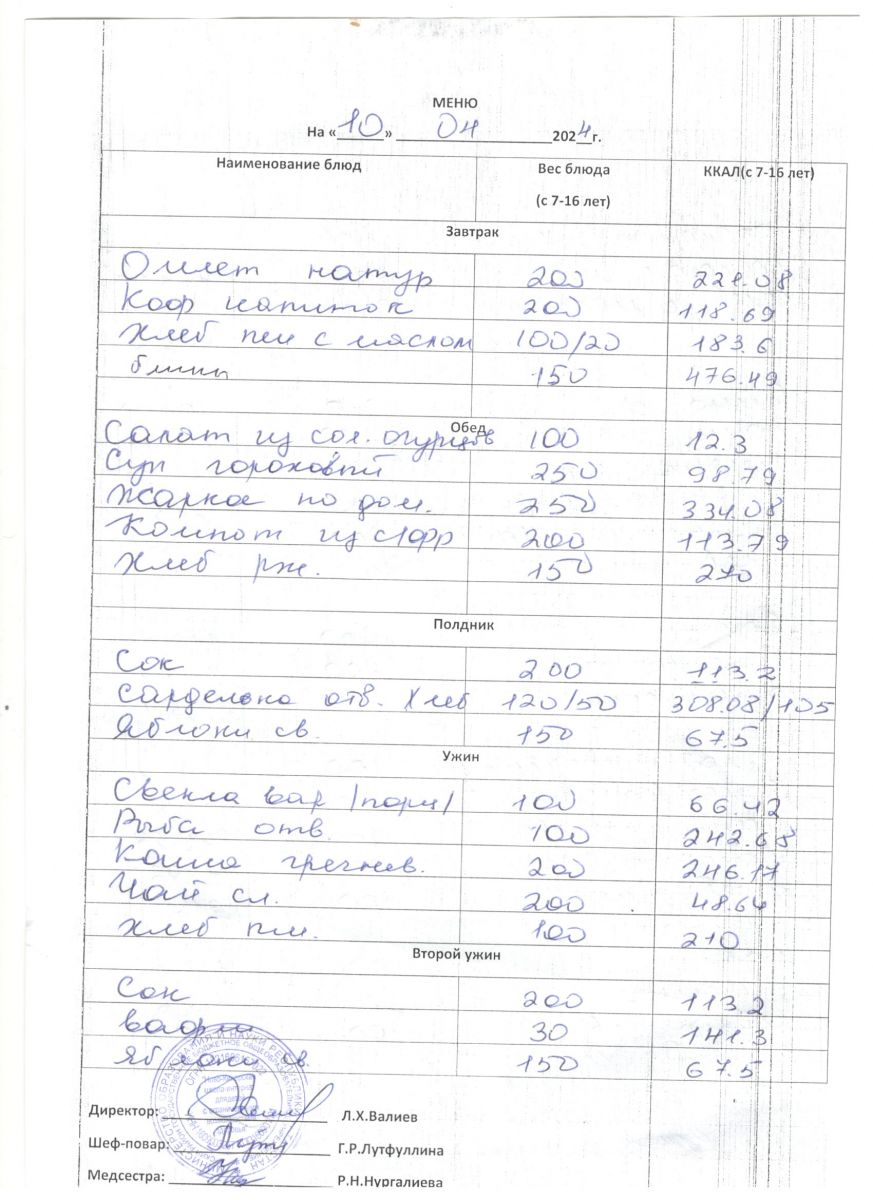 МЕНЮ
На «10» 04 2024г.
Наименование блюд Вес блюда (с 7-16 лет) ККАЛ(с 7-16 лет)
Завтрак
Омлет натур 200 221.08
Коф напиток 200 118.69
Хлеб пш с маслом 100/20 183.6
блины 150 476.49
Обед
Салат из сол. огурцов 100 12.3
Суп гороховый 250 98.79
Жаркое по дом. 250 334.08
Компот из с/фр 200 113.79
Хлеб рж. 150 270
Полдник
Сок 200 113.2
Сарделька отв. Хлеб 120/50 308.08/105
Яблоки св. 150 67.5
Ужин
Свекла вар /порц/ 100 66.42
Рыба отв. 100 242.68
Каша гречнев. 200 246.17
Чай сл. 200 48.64
Хлеб пш. 100 210
Второй ужин
Сок 200 113.2
Вафли 30 141.3
Яблоко св. 150 67.5
Директор: Л.Х.Валиев
Шеф-повар: Г.Р.Лутфуллина
Медсестра: Р.Н.Нургалиева